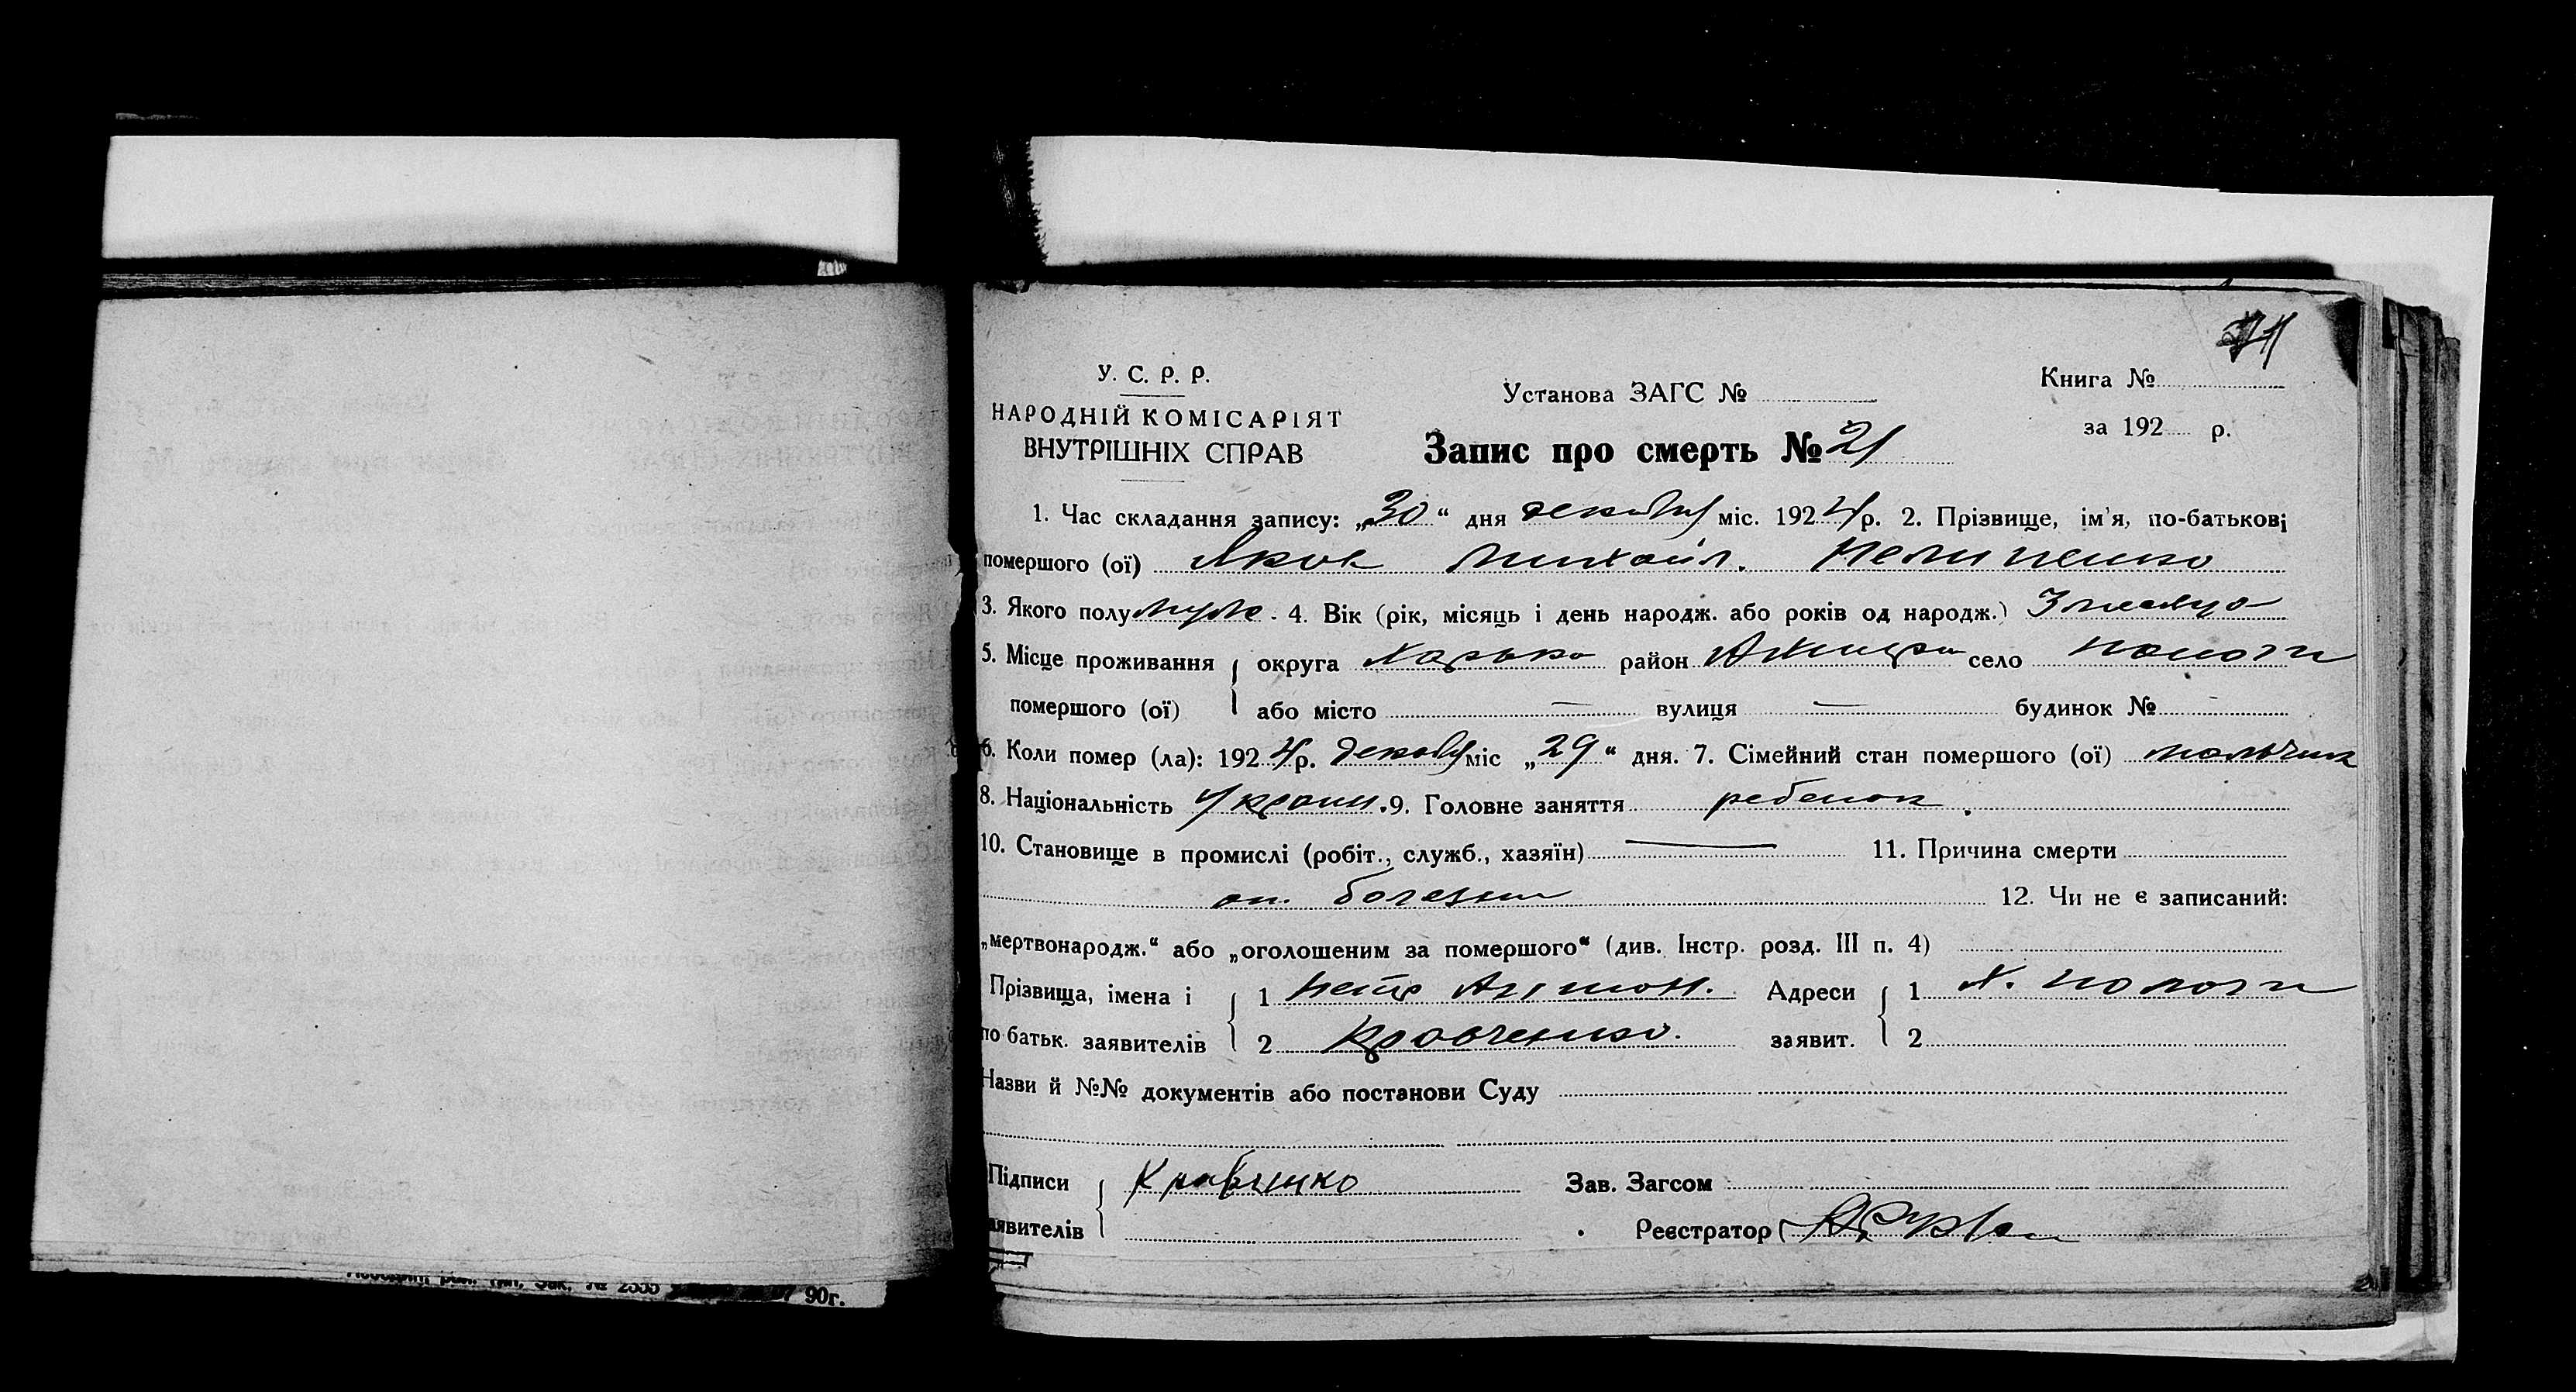 У. С. Р. Р.
НАРОДНІЙ КОМІСАРІЯТ
ВНУТРІШНІХ СПРАВ
Установа ЗАГС №
Книга №
за 192 р.
Запис про смерть № 21
1. Час складання запису: „30“ дня декабря міс. 1924 р. 2. Прізвище, ім'я, по-батькові
помершого (ої) Яков Михайл.
3. Якого полу муж. 4. Вік (рік, місяць і день народж. або років од народж.) 3 месяца
5. Місце проживання округа Харько район село
помершого (ої) або місто — вулиця — будинок №
6. Коли помер (ла): 1924 р. декабря міс „29“ дня. 7. Сімейний стан помершого (ої) мальчик
8. Національність Украин. 9. Головне заняття ребенок.
10. Становище в промислі (робіт., служб., хазяїн) — 11. Причина смерти
от болезни 12. Чи не є записаний:
„мертвонародж.“ або „оголошеним за помершого“ (див. Інстр. розд. III п. 4)
Прізвища, імена і 1 Петр Адресси 1 х.
по батьк. заявителів 2 Кравченко. заявит. 2
Назви й №№ документів або постанови Суду
Підписи Кравченко Зав. Загсом
аявителів Реєстратор
Зак. № 2555 90г.